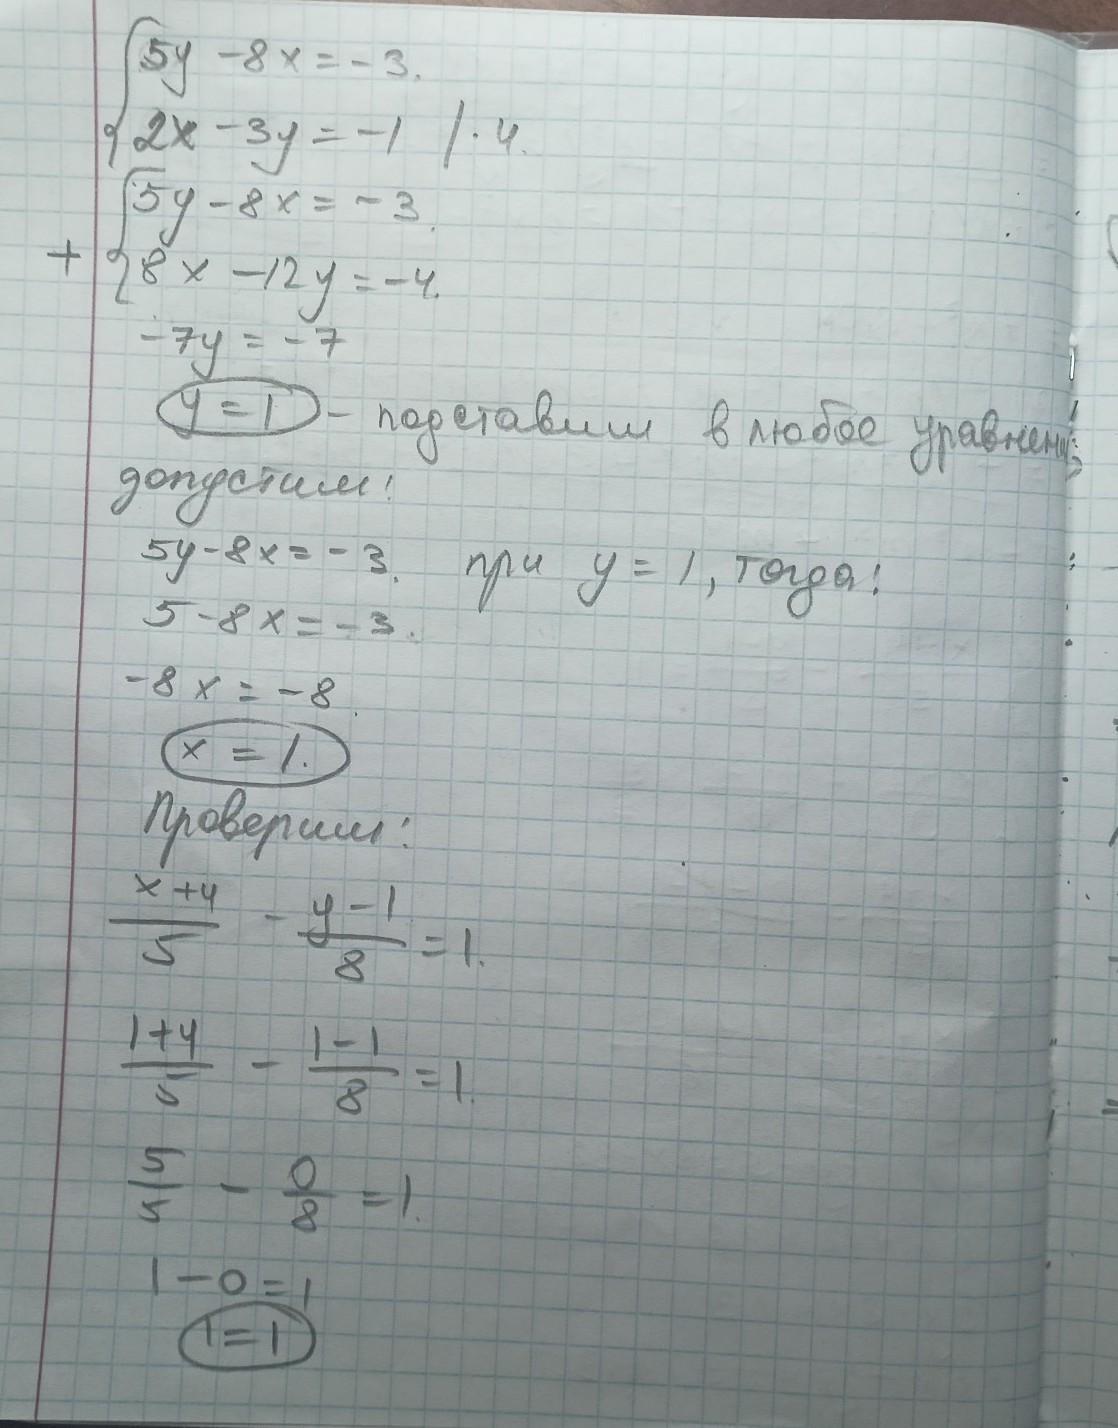 5y - 8x = -3.
2x - 3y = -1 / · 4.
5y - 8x = -3.
+ 8x - 12y = -4.
-7y = -7
y = 1 - подставим в любое уравнени
допустим:
5y - 8x = -3. при y = 1, тогда:
5 - 8x = -3.
-8x = -8.
x = 1.
Проверим:
x + 4 / 5 - y - 1 / 8 = 1.
1 + 4 / 5 - 1 - 1 / 8 = 1.
5 / 5 - 0 / 8 = 1.
1 - 0 = 1
1 = 1